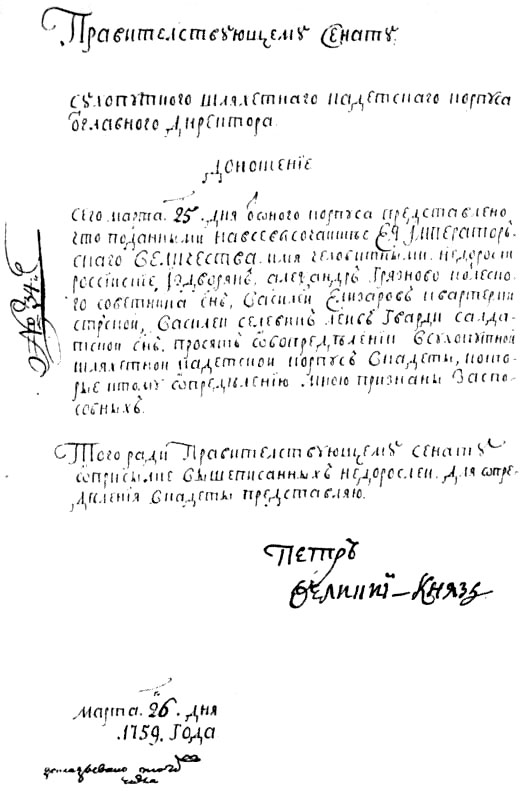 Правителствующему Сенату
Сухопутного шляхетнаго кадетскаго корпуса
ѿ главного директора
Доношение
Сего марта 25 дня оѿ оного корпуса представлено
что поданными на всевысочайшее Ея Императоръ-
скаго Величества имя челобитными недоросли
российские из дворянъ, александръ Грязново полеского
го советника снъ, Василеи Елизаровъ квартерми
стрской, Василеи селевинъ леибъ Гварди салда-
тской снъ, просятъ ѡбопределении в Сухопутной
шляхетной кадетской корпусъ в кадеты, кото-
рые ктому ѡпределению мною признаны за спо-
собныхъ.
Того ради Правителствующему сенату
ѡприсылке вышеписанныхъ недорослеи для ѡпре-
деления в кадеты представляю.
Петръ
Великий – Князь
Марта 26 дня
1759 Года
№ 234